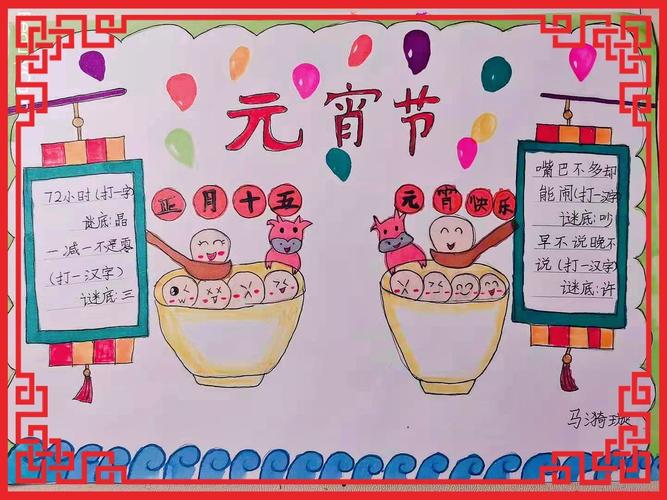 元宵节
正月十五
元宵快乐
72小时(打一字)
谜底:晶
一减一不是零
(打一汉字)
谜底:三
嘴巴不多却
能闹(打一汉字)
谜底:吵
早不说晚不
说(打一汉字)
谜底:许